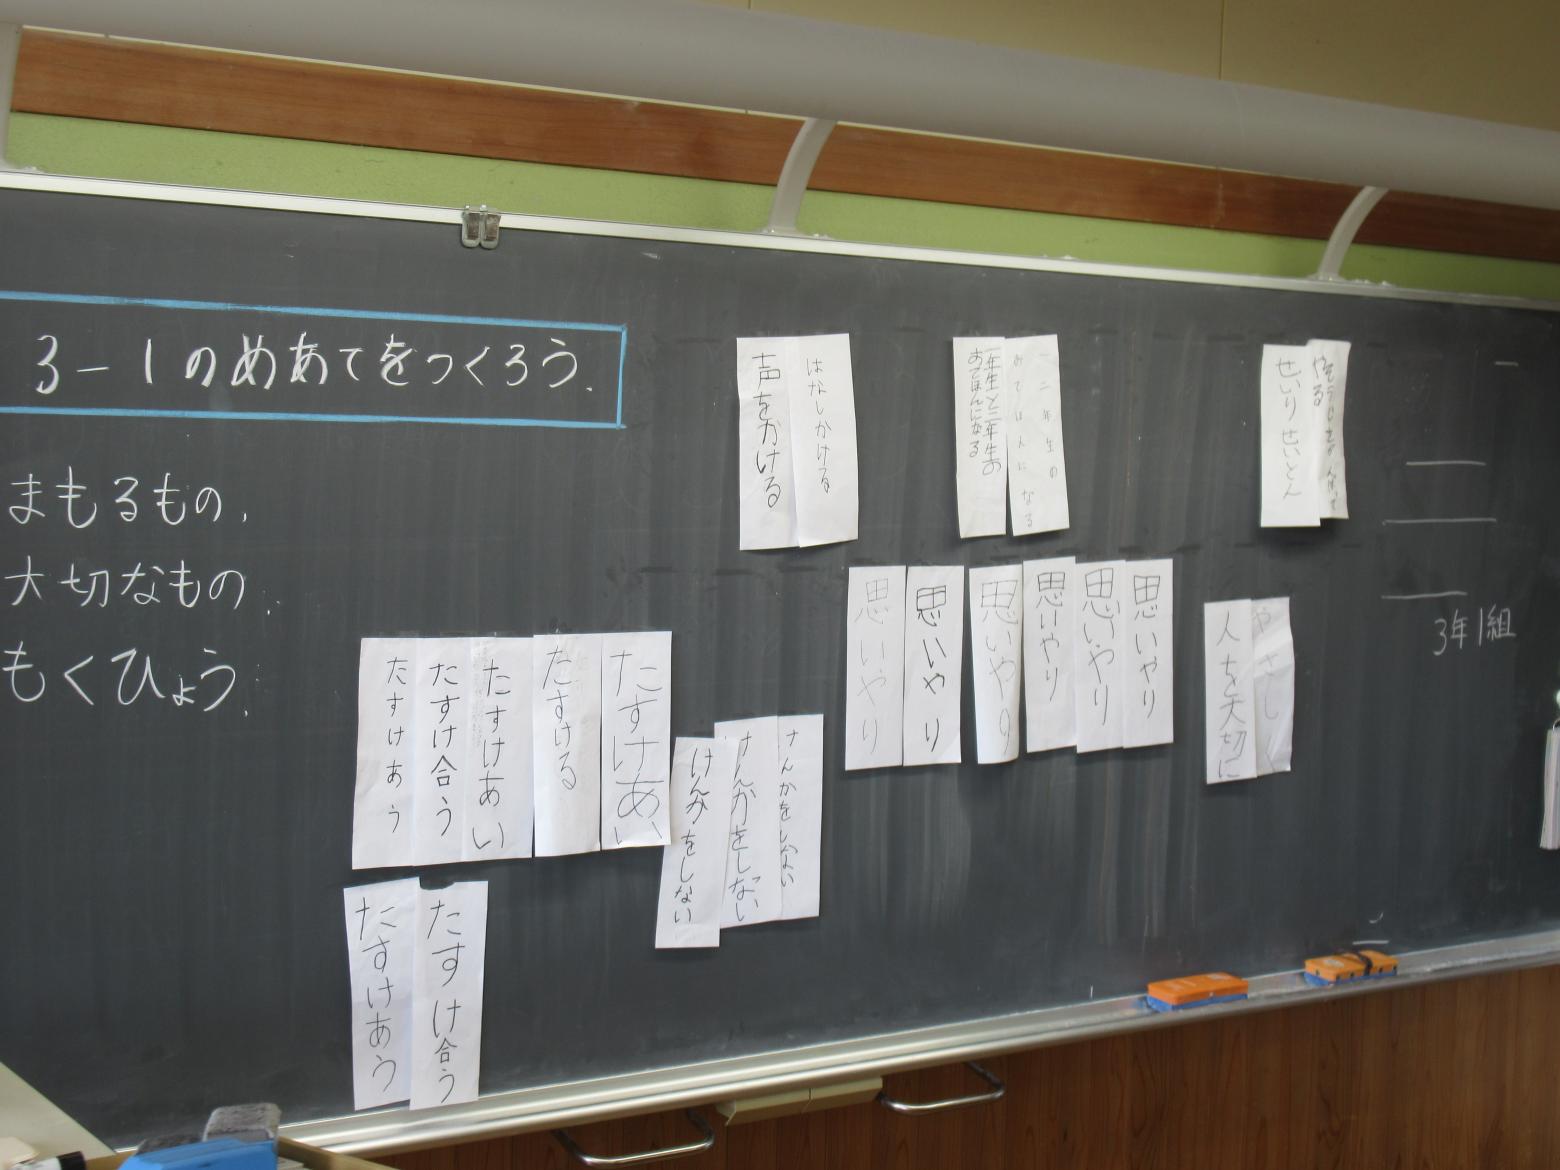 3-1のめあてをつくろう.
まもるもの.
大切なもの.
もくひょう.
声をかける
はなしかける
一年生と二年生の
おてほんになる
一二年生の
おてほんになる
せいりせいとん
やる
思いやり
思いやり
思いやり
思いやり
思いやり
思いやり
人を大切に
やさしく
3年1組
たすけあう
たすけ合う
たすけあい
たすける
たすけあい
けんかをしない
けんかをしない
けんかをしない
たすけあう
たすけ合う